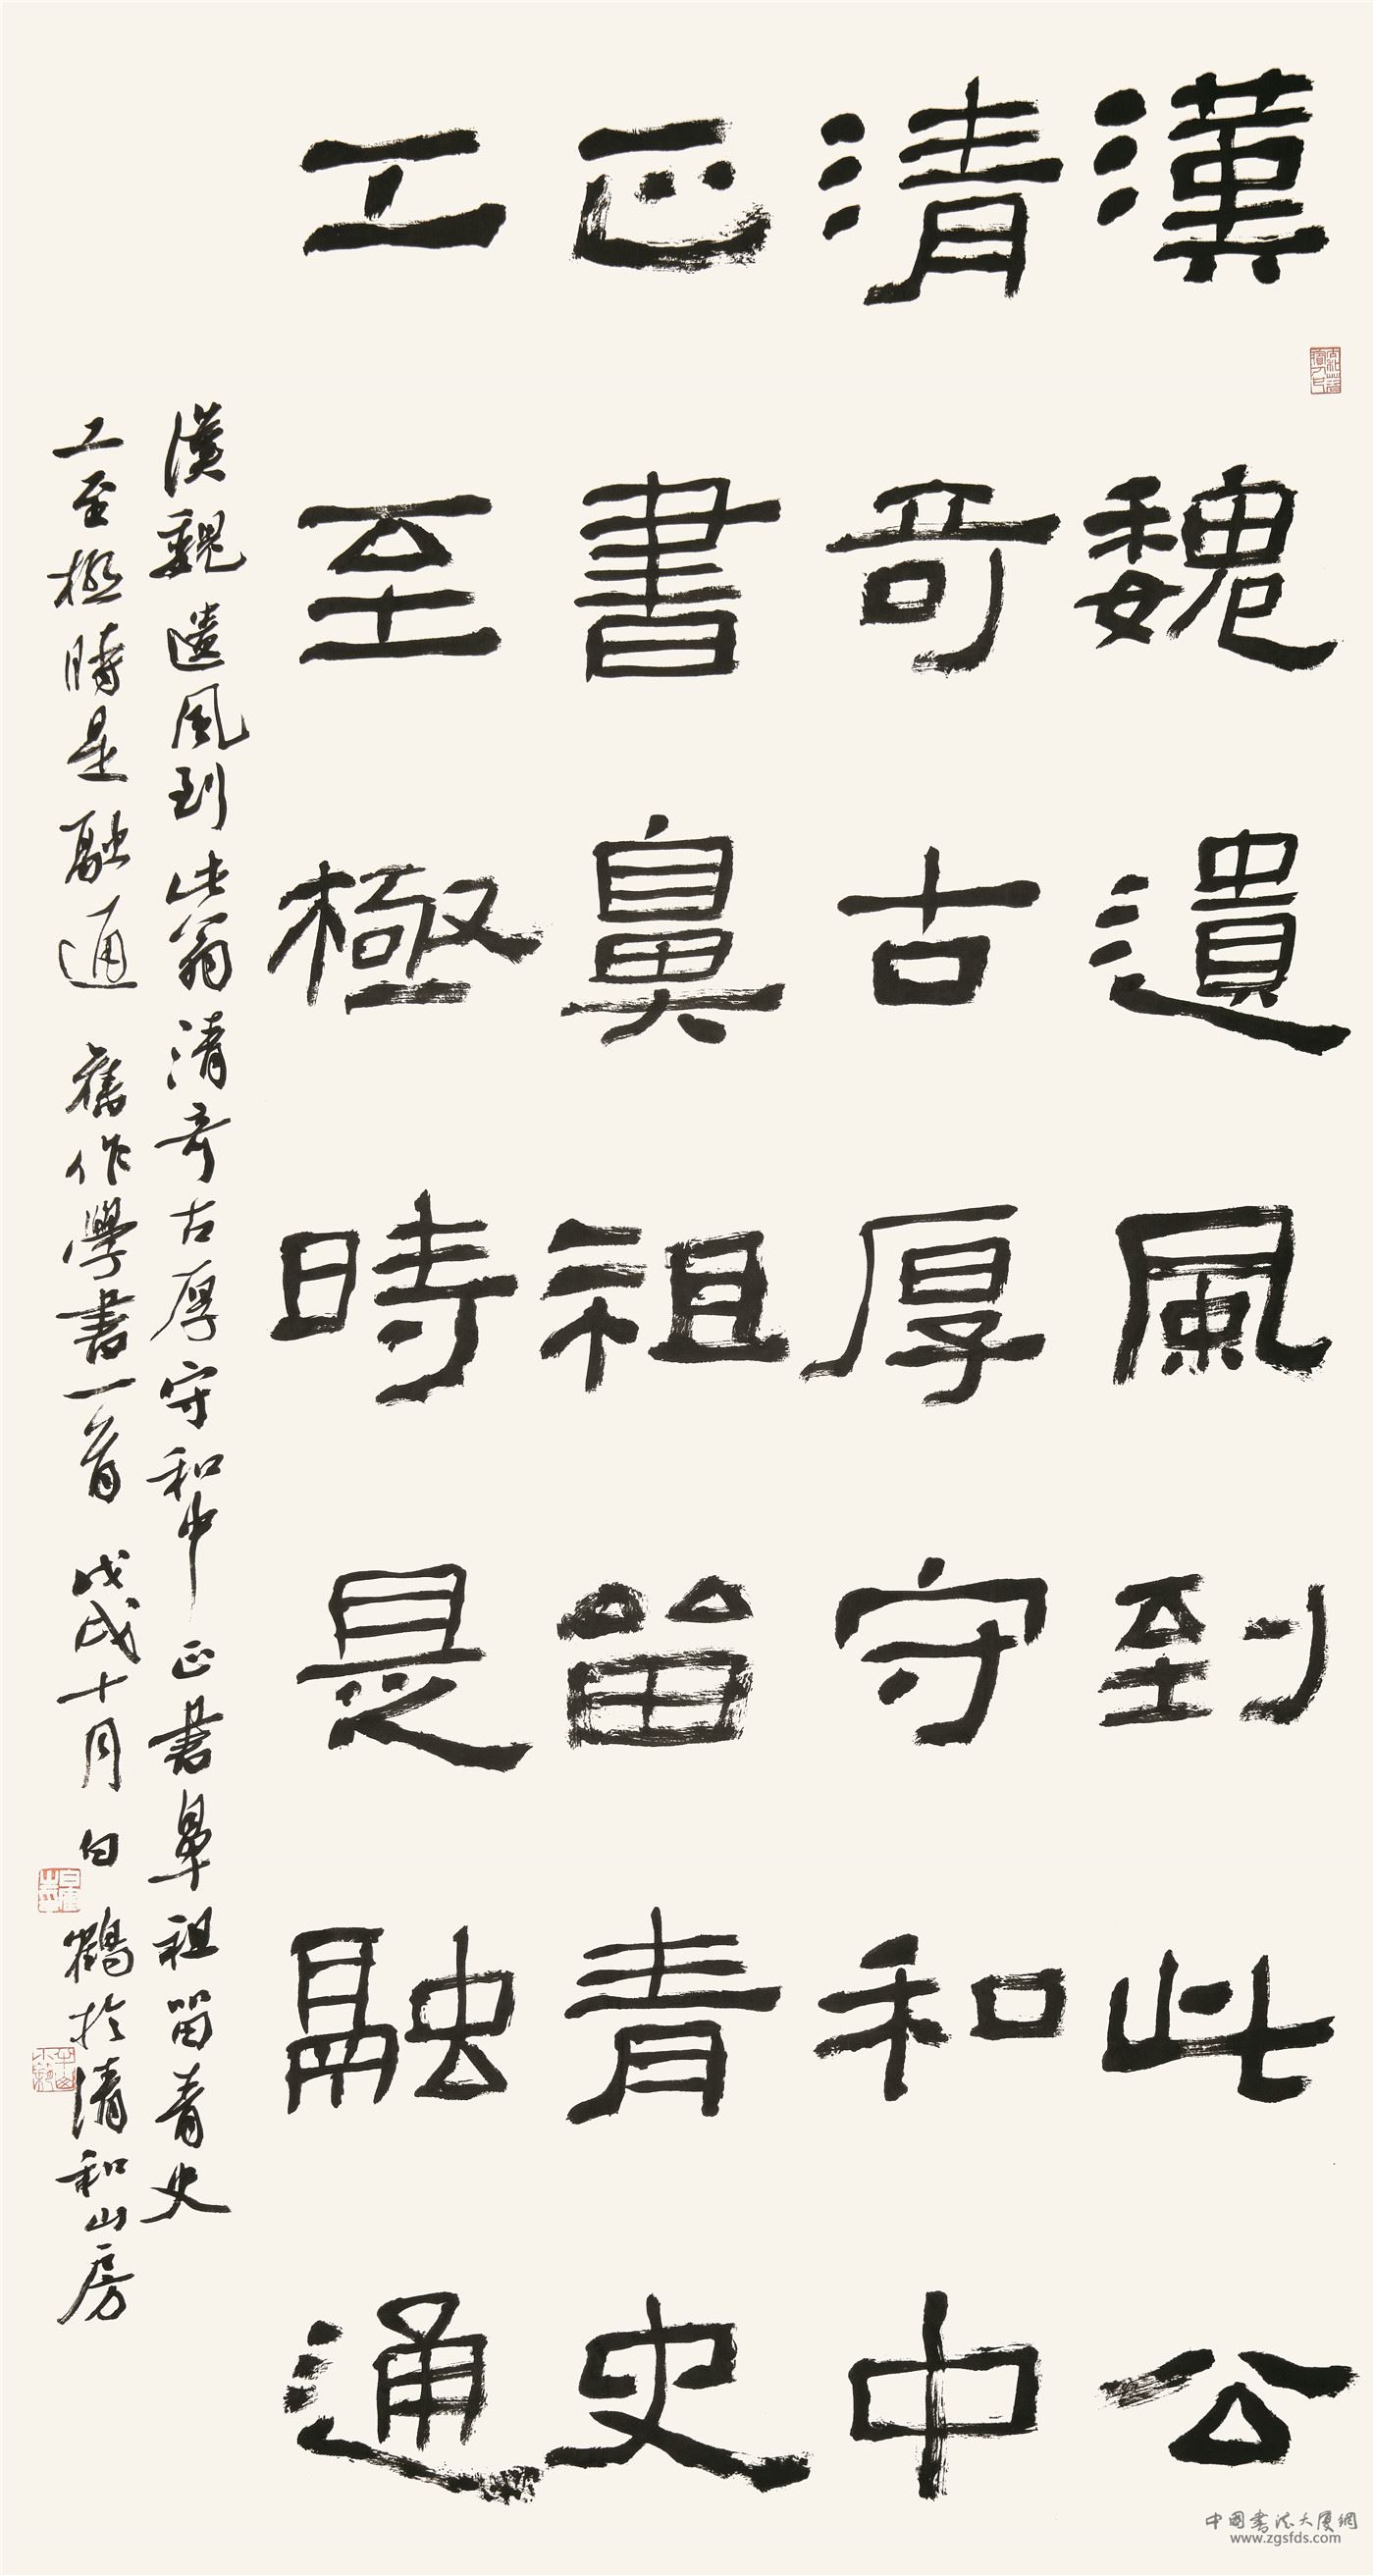 漢魏遺風到此公
清奇古厚守和中
正書鼻祖留青史
工至極時是融通
漢魏遺風到此翁清奇古厚守和中正書鼻祖留青史
工至極時是融通 舊作學書一首 戊戌十月 白鶴於清和山房
中国书法大厦網
www.zgsfds.com